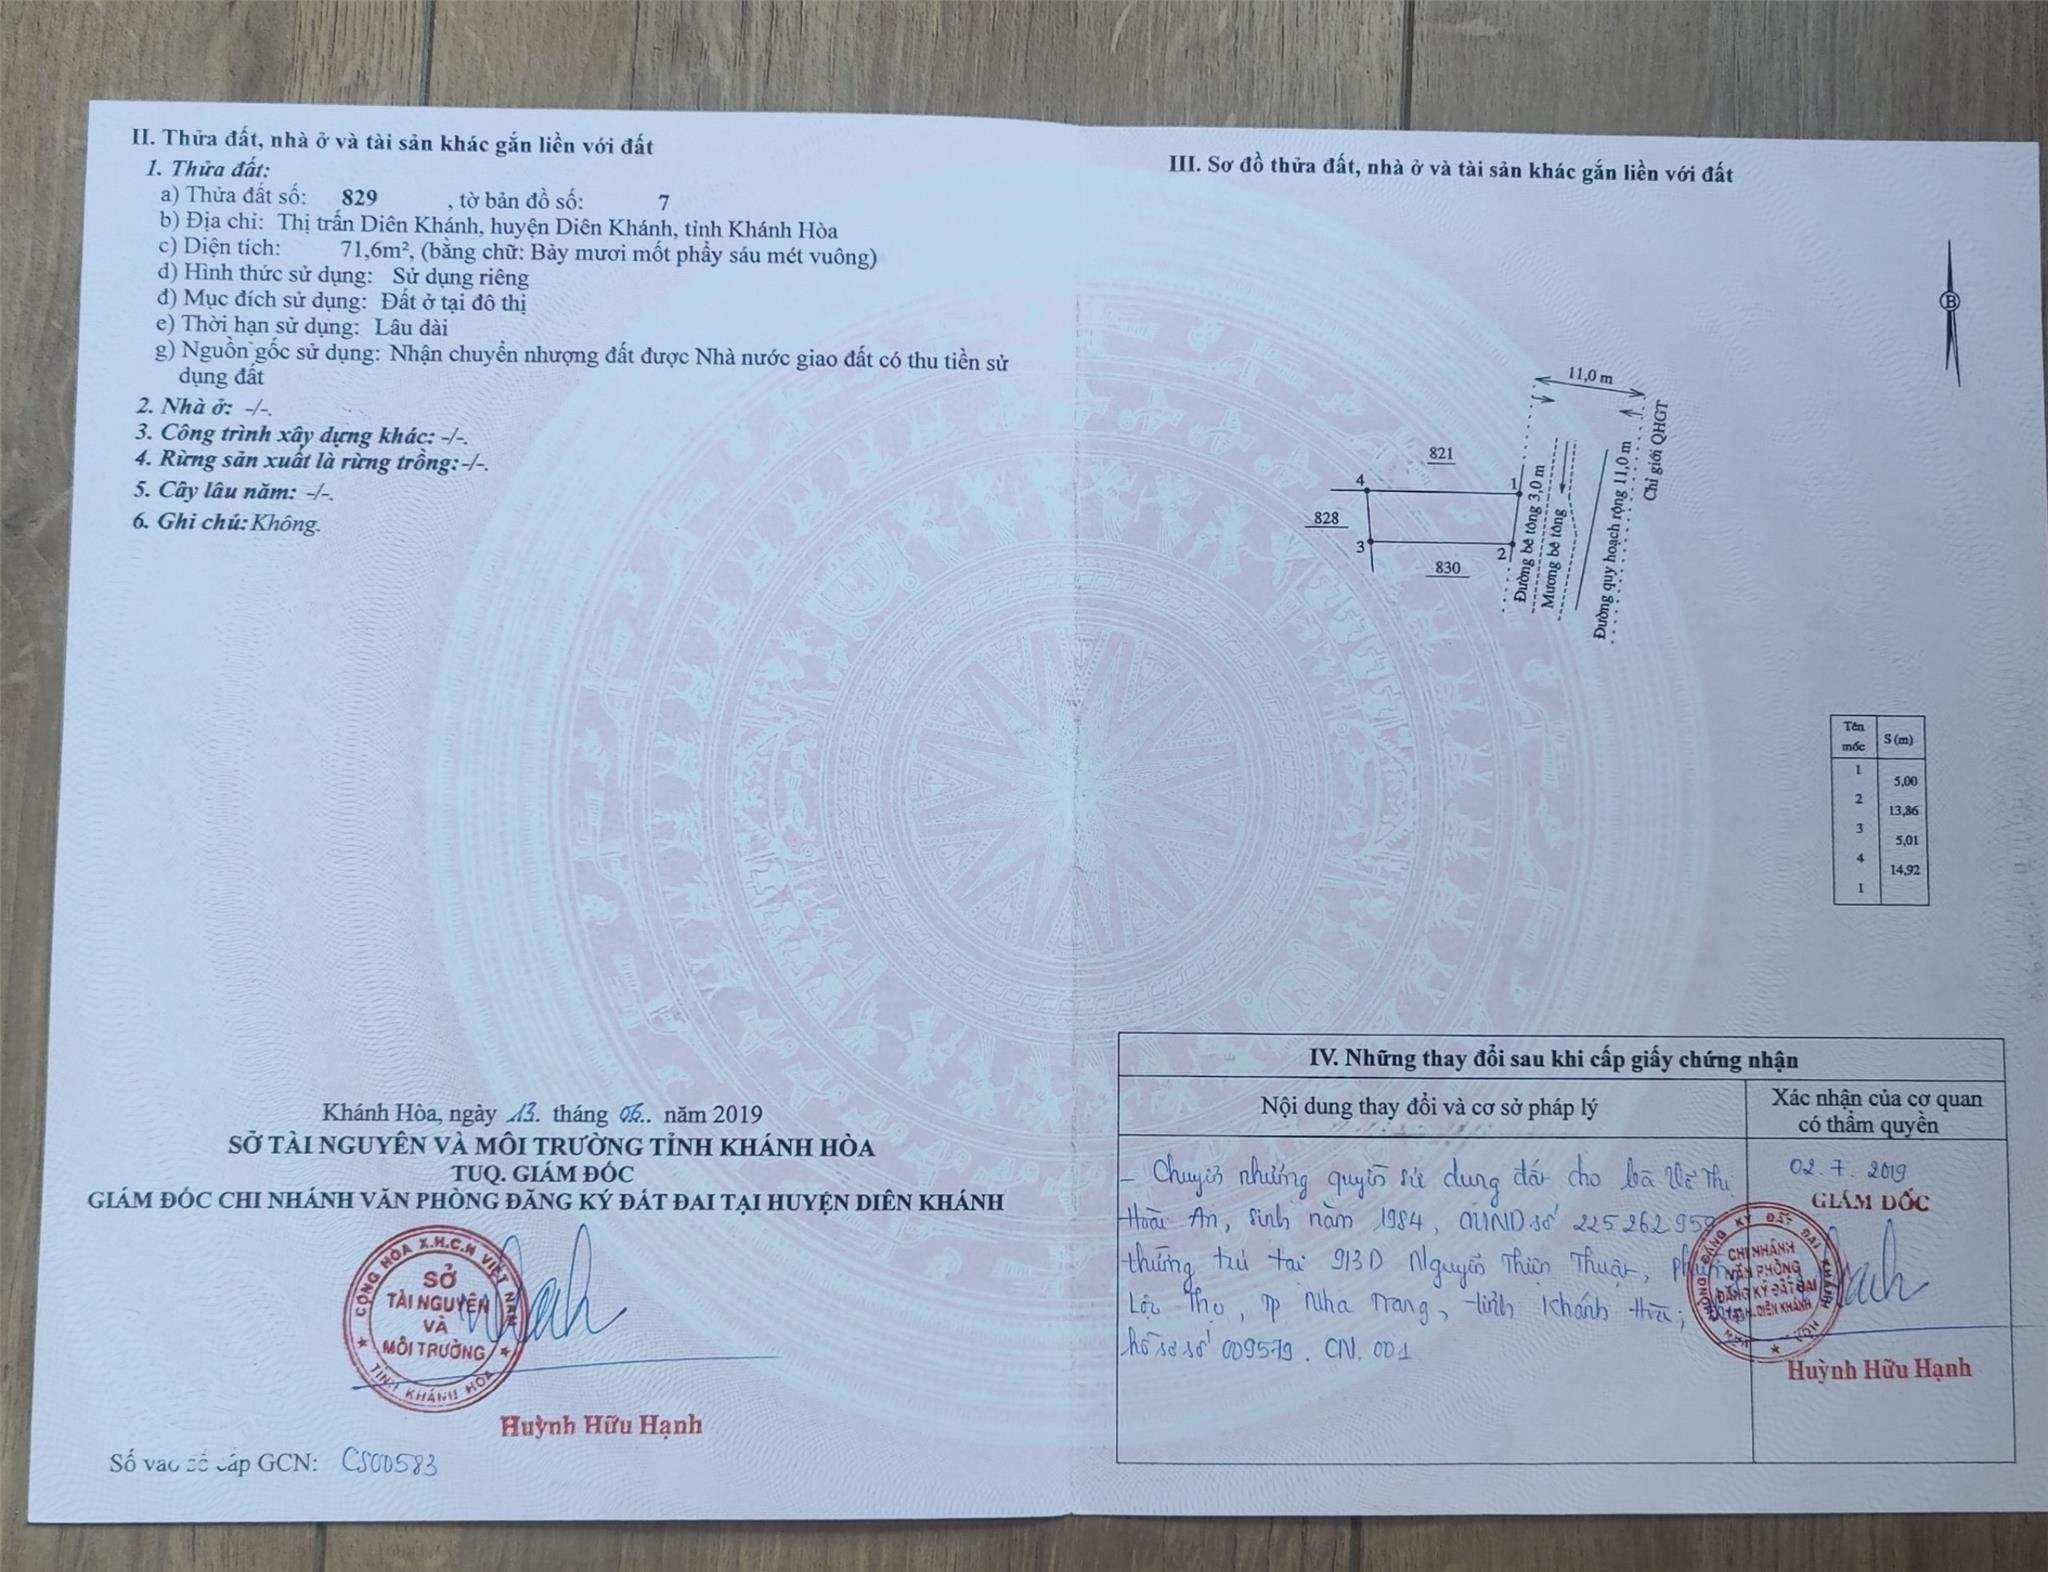 II. Thửa đất, nhà ở và tài sản khác gắn liền với đất
1. Thửa đất:
a) Thửa đất số: 829 , tờ bản đồ số: 7
b) Địa chỉ: Thị trấn Diên Khánh, huyện Diên Khánh, tỉnh Khánh Hòa
c) Diện tích: 71,6m², (bằng chữ: Bảy mươi mốt phẩy sáu mét vuông)
d) Hình thức sử dụng: Sử dụng riêng
đ) Mục đích sử dụng: Đất ở tại đô thị
e) Thời hạn sử dụng: Lâu dài
g) Nguồn gốc sử dụng: Nhận chuyển nhượng đất được Nhà nước giao đất có thu tiền sử
dụng đất
2. Nhà ở: -/-.
3. Công trình xây dựng khác: -/-.
4. Rừng sản xuất là rừng trồng: -/-.
5. Cây lâu năm: -/-.
6. Ghi chú: Không.
Khánh Hòa, ngày 13. tháng 06.. năm 2019
SỞ TÀI NGUYÊN VÀ MÔI TRƯỜNG TỈNH KHÁNH HÒA
TUQ. GIÁM ĐÓC
GIÁM ĐÓC CHI NHÁNH VĂN PHÒNG ĐĂNG KÝ ĐẤT ĐAI TẠI HUYỆN DIÊN KHÁNH
CỘNG HÒA X.H.C.N VIỆT NAM
SỞ
TÀI NGUYÊN
VÀ
MÔI TRƯỜNG
TỈNH KHÁNH HÒA
Huỳnh Hữu Hạnh
Số vào sổ cấp GCN: CS00583
III. Sơ đồ thửa đất, nhà ở và tài sản khác gắn liền với đất
B
11,0 m
821
4
1
828
3
2
830
Đường bê tông 3,0 m
Mương bê tông
Đường quy hoạch rộng 11,0 m
Chỉ giới QHGT
Tên
mốc S (m)
1
5,00
2
13,86
3
5,01
4
14,92
1
IV. Những thay đổi sau khi cấp giấy chứng nhận
Nội dung thay đổi và cơ sở pháp lý
Xác nhận của cơ quan
có thẩm quyền
- Chuyển nhượng quyền sử dụng đất cho bà Võ Thị
Hoài An, sinh năm 1984, CMND số 225262958
thường trú tại 913D Nguyễn Thiện Thuật, phường
Lộc Thọ, TP Nha Trang, tỉnh Khánh Hòa;
hồ sơ số 009579. CN. 001
02.7.2019
GIÁM ĐỐC
CHI NHÁNH
VĂN PHÒNG
ĐĂNG KÝ ĐẤT ĐAI
H. DIÊN KHÁNH
Huỳnh Hữu Hạnh